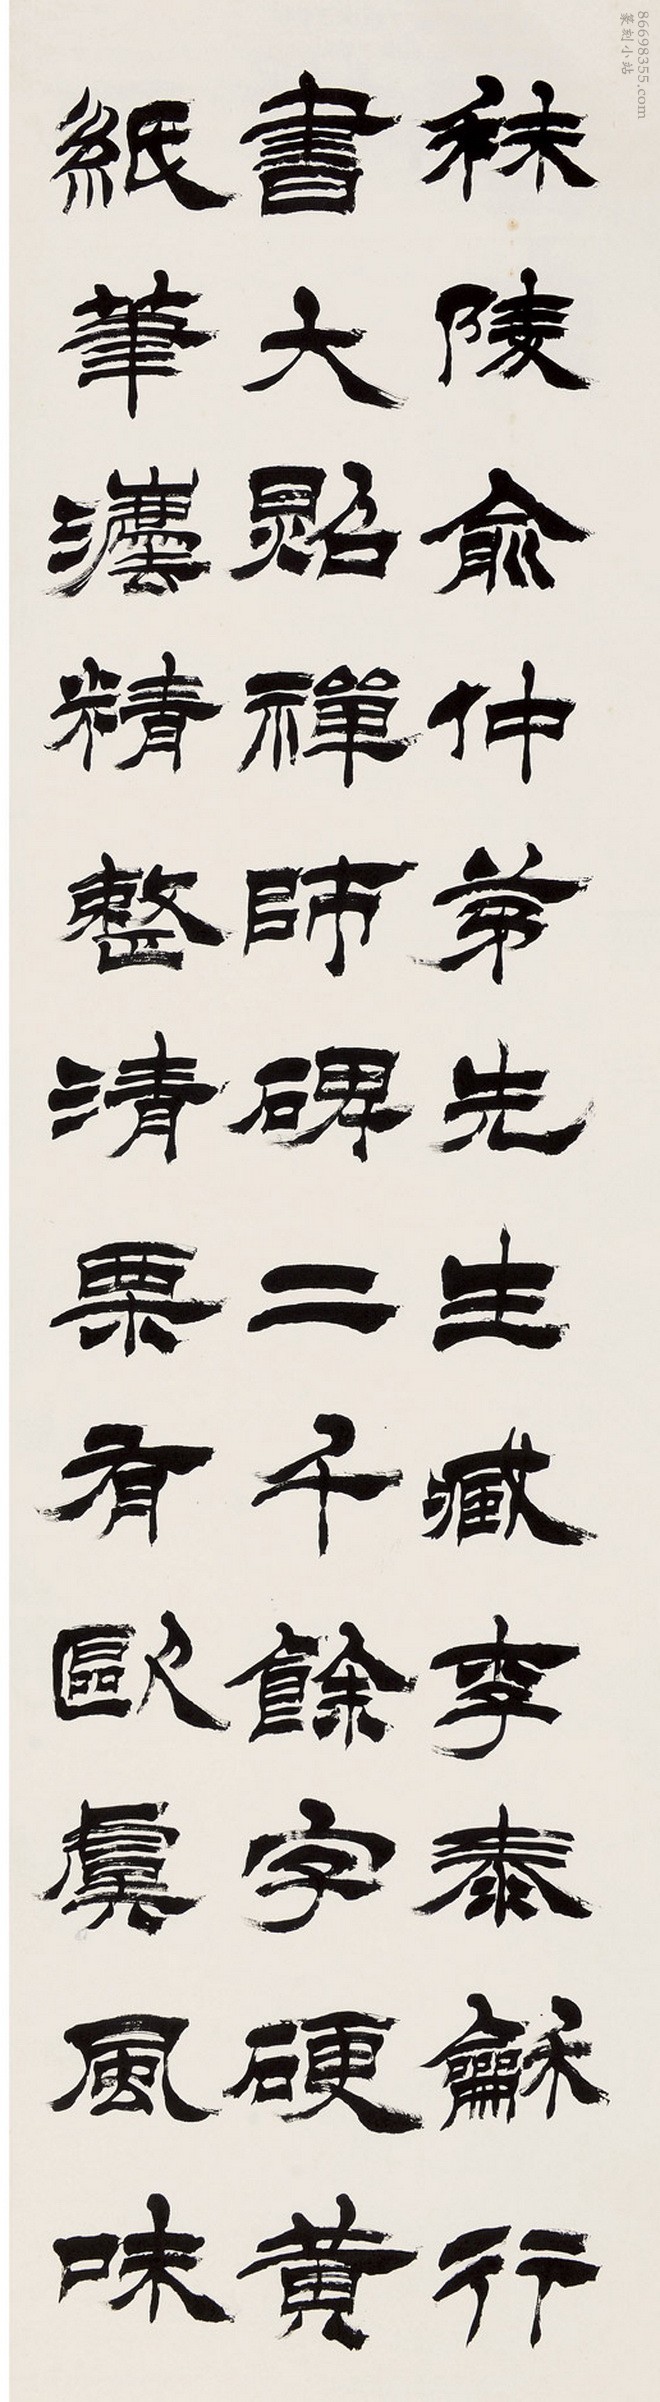 秣陵俞仲茅先生臧李泰龢行
書大照禪師碑二千餘字硬黃
紙筆灋精整清栗有歐虞風味
86698355.com
篆刻小站